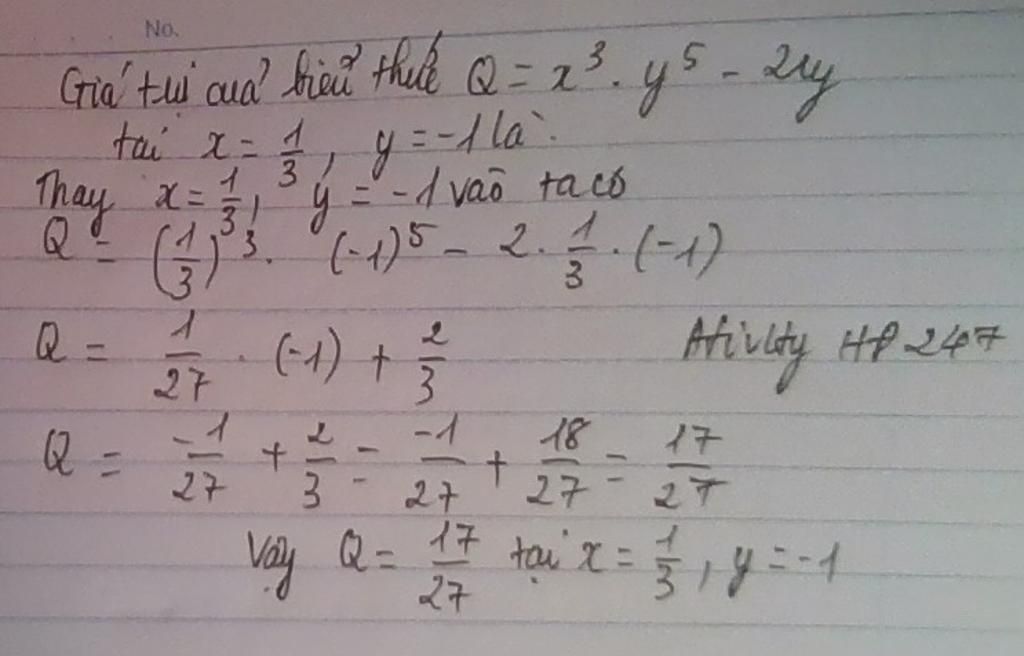 No.
Giá trị của biểu thức Q = x³ . y⁵ - 2xy
tại x = 1/3, y = -1 là
Thay x = 1/3, y = -1 vào ta có
Q = (1/3)³ . (-1)⁵ - 2 . 1/3 . (-1)
Q = 1/27 . (-1) + 2/3
HP 247
Q = -1/27 + 2/3 = -1/27 + 18/27 = 17/27
Vậy Q = 17/27 tại x = 1/3, y = -1